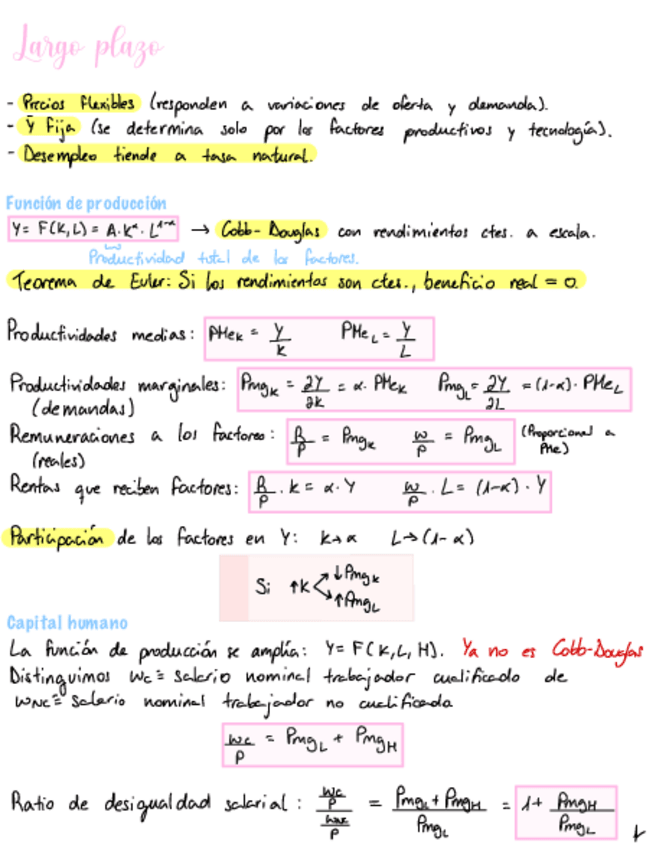 Largo plazo
- Precios flexibles (responden a variaciones de oferta y demanda).
- Ȳ Fija (se determina solo por los factores productivos y tecnología).
- Desempleo tiende a tasa natural.
Función de producción
Y = F(K,L) = A·K^α·L^(1-α) → Cobb-Douglas con rendimientos ctes. a escala.
Productividad total de los factores.
Teorema de Euler: Si los rendimientos son ctes., beneficio real = 0.
Productividades medias: PMe_K = Y/K PMe_L = Y/L
Productividades marginales: Pmg_K = ∂Y/∂K = α·PMe_K Pmg_L = ∂Y/∂L = (1-α)·PMe_L
(demandas)
Remuneraciones a los factores: R/P = Pmg_K w/P = Pmg_L (Proporcional a PMe)
(reales)
Rentas que reciben factores: R/P · K = α·Y w/P · L = (1-α)·Y
Participación de los factores en Y: K→α L→(1-α)
Si ↑K ↓Pmg_K
↑Pmg_L
Capital humano
La función de producción se amplía: Y = F(K,L,H). Ya no es Cobb-Douglas
Distinguimos wc ≡ salario nominal trabajador cualificado de
wNC ≡ salario nominal trabajador no cualificado
wc/P = Pmg_L + Pmg_H
Ratio de desigualdad salarial: (wc/P)/(wnc/P) = (Pmg_L + Pmg_H)/Pmg_L = 1 + Pmg_H/Pmg_L